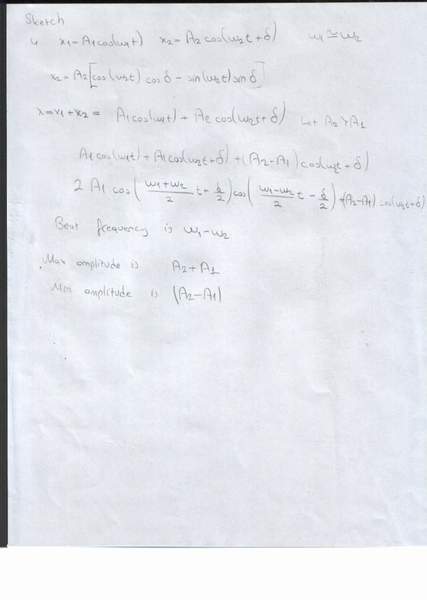 Sketch
4 x1=A1cos(ω1t) x2=A2cos(ω2t+δ) ω1≅ω2
x2=A2[cos(ω2t)cosδ-sin(ω2t)sinδ]
x=x1+x2= A1cos(ω1t)+A2cos(ω2t+δ) Let A2>A1
A1cos(ω1t)+A1cos(ω2t+δ)+(A2-A1)cos(ω2t+δ)
2A1cos((ω1+ω2)/2 t+δ/2)cos((ω1-ω2)/2 t-δ/2)+(A2-A1)cos(ω2t+δ)
Beat frequency is ω1-ω2
Max amplitude is A2+A1
Min amplitude is (A2-A1)